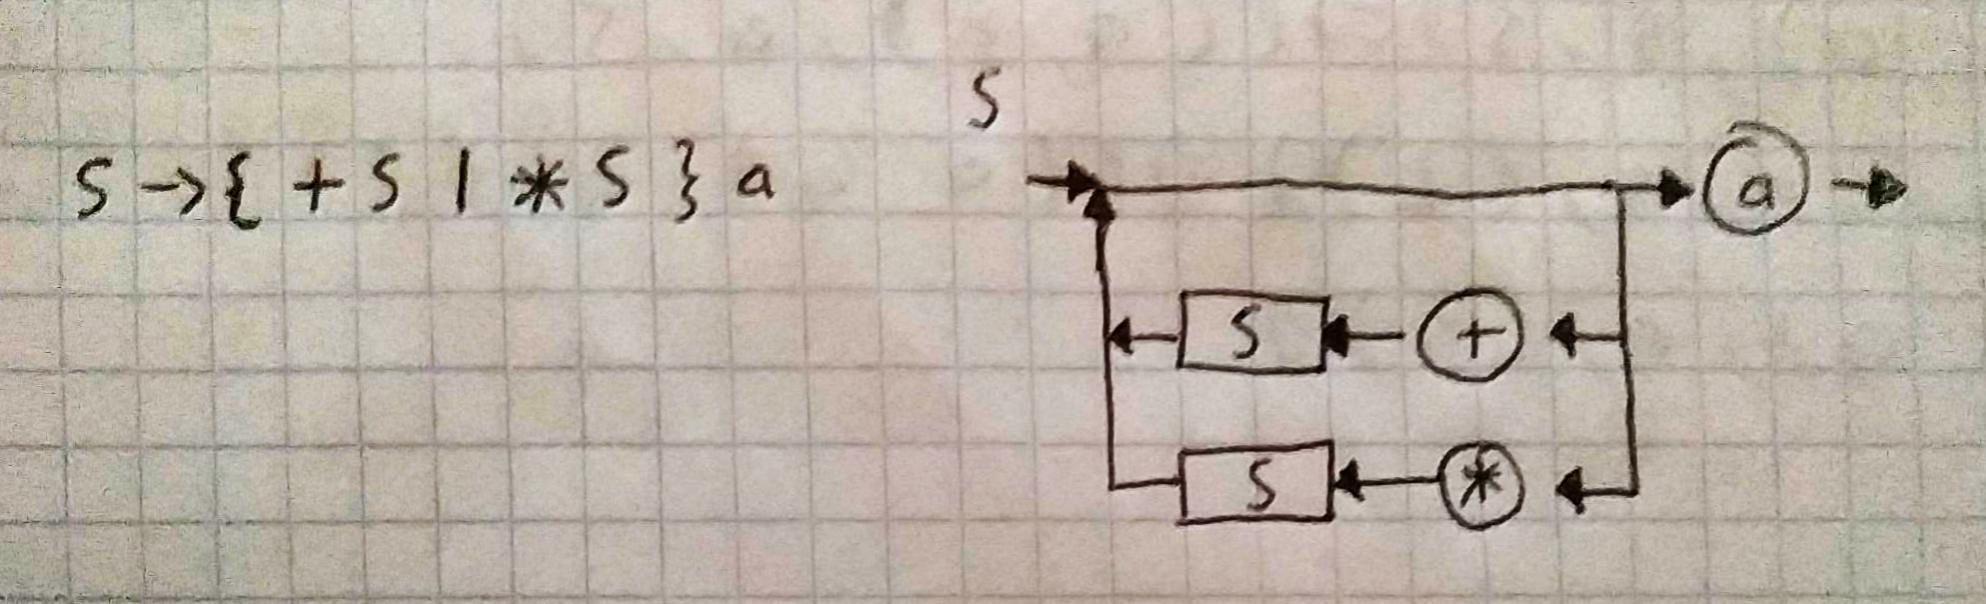 S → { + S | * S } a
S
a
S +
S *